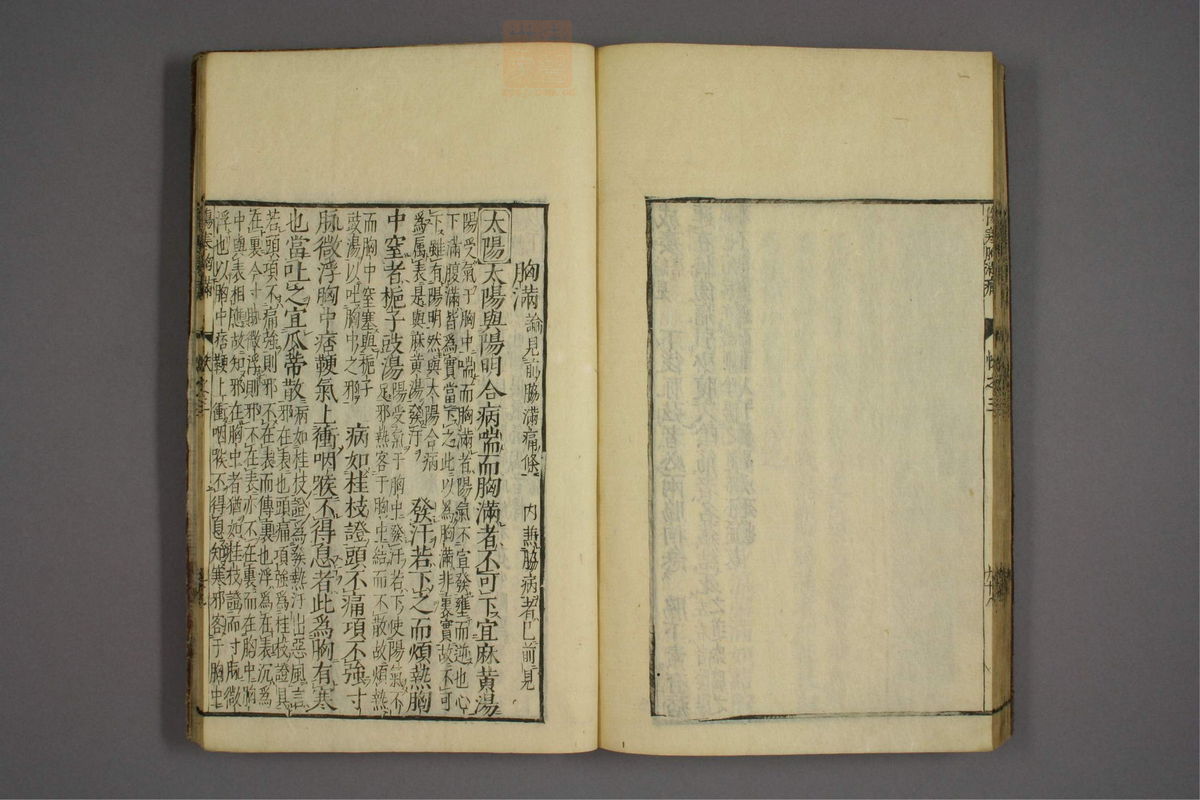 胸滿 論見前脇滿痛條 内兼脇病者已前見
太陽 太陽與陽明合病喘而胸滿者不可下宜麻黄湯
陽受氣于胸中喘而胸滿者陽氣不宣發壅而逆也心
下滿腹滿皆為實當下之此以為胸滿非裏實故不可
下雖有陽明然與太陽合病
為属表是與麻黄湯發汗
發汗若下之而煩熱胸
中窒者梔子豉湯
陽受氣于胸中發汗若下使陽氣不
足邪熱客于胸中結而不散故煩熱
而胸中窒塞與梔子
豉湯以吐胸中之邪
病如桂枝證頭不痛項不強寸
脉微浮胸中痞鞕氣上衝咽喉不得息者此爲胸有寒
也當吐之宜瓜蒂散
病如桂枝證為發熱汗出惡風言
邪在表也頭痛項強為桂枝證具
若頭項不痛強則邪不在表而傳裏也浮為在表沉為
在裏今寸脉微浮則邪不在表亦不在裏而在胸中胸
中與表相應故知邪在胸中者猶如桂枝證而寸脉微
浮也以胸中痞鞕上衝咽喉不得息知寒邪客于胸中
傷寒胸滿
卷之三